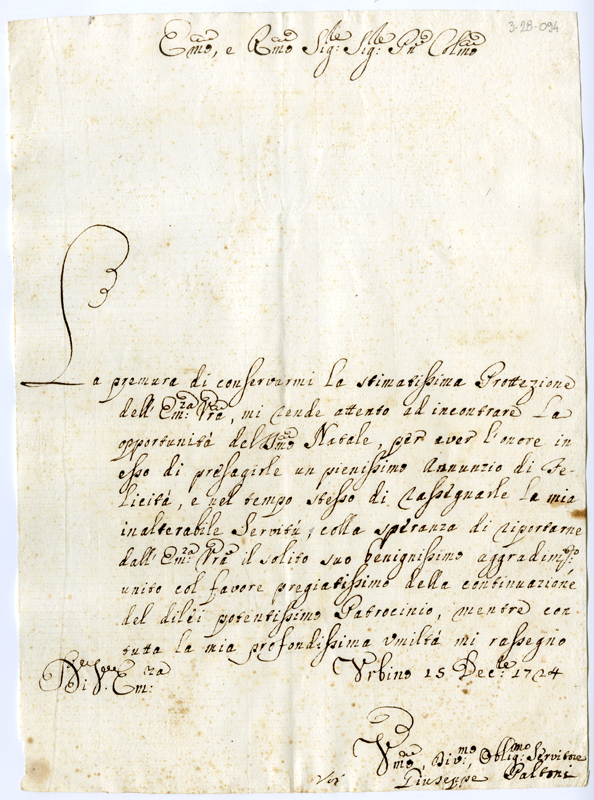 3-28-094
Emo, e Rmo Sig:re Sig:re Pne Colmo
La premura di conservarmi la stimatissima Prottezione
dell'Em:za Vra, mi rende attento ad incontrare la
opportunità del Smo Natale, per aver l'onore in
esso di presagirle un pienissimo Annunzio di Fe-
licità, e nel tempo stesso di rassegnarle la mia
inalterabile Servitù, colla speranza di riportarne
dall'Em:za Vra il solito suo benignissimo aggradim:to,
unito col favore pregiatissimo della continuazione
del dilei potentissimo Patrocinio, mentre con
tutta la mia profondissima umiltà mi rassegno
Di V. Em:za
Urbino 15 Dec:re 1724
Vmo, Div:mo, Oblig:mo Servitore
Giuseppe